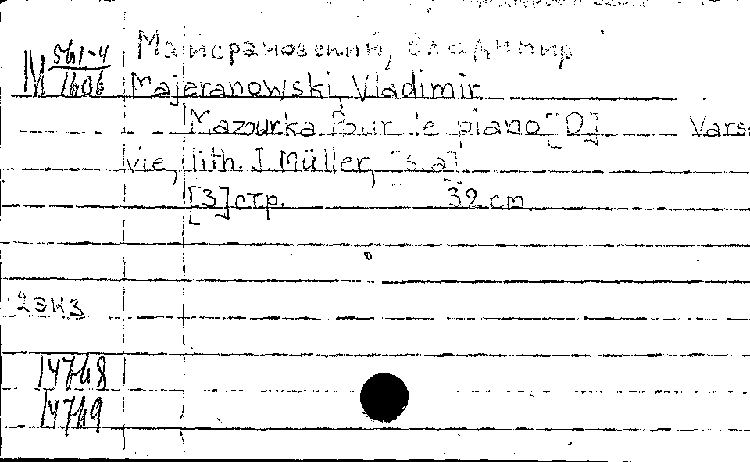 М 561-4 Майерановский, Владимир
1606 Majeranowski, Vladimir
Mazourka pour le piano [D] Varso
vie, lith. J. Müller, [s.a]
[3] стр. 32 cm
2 экз
14748
14749